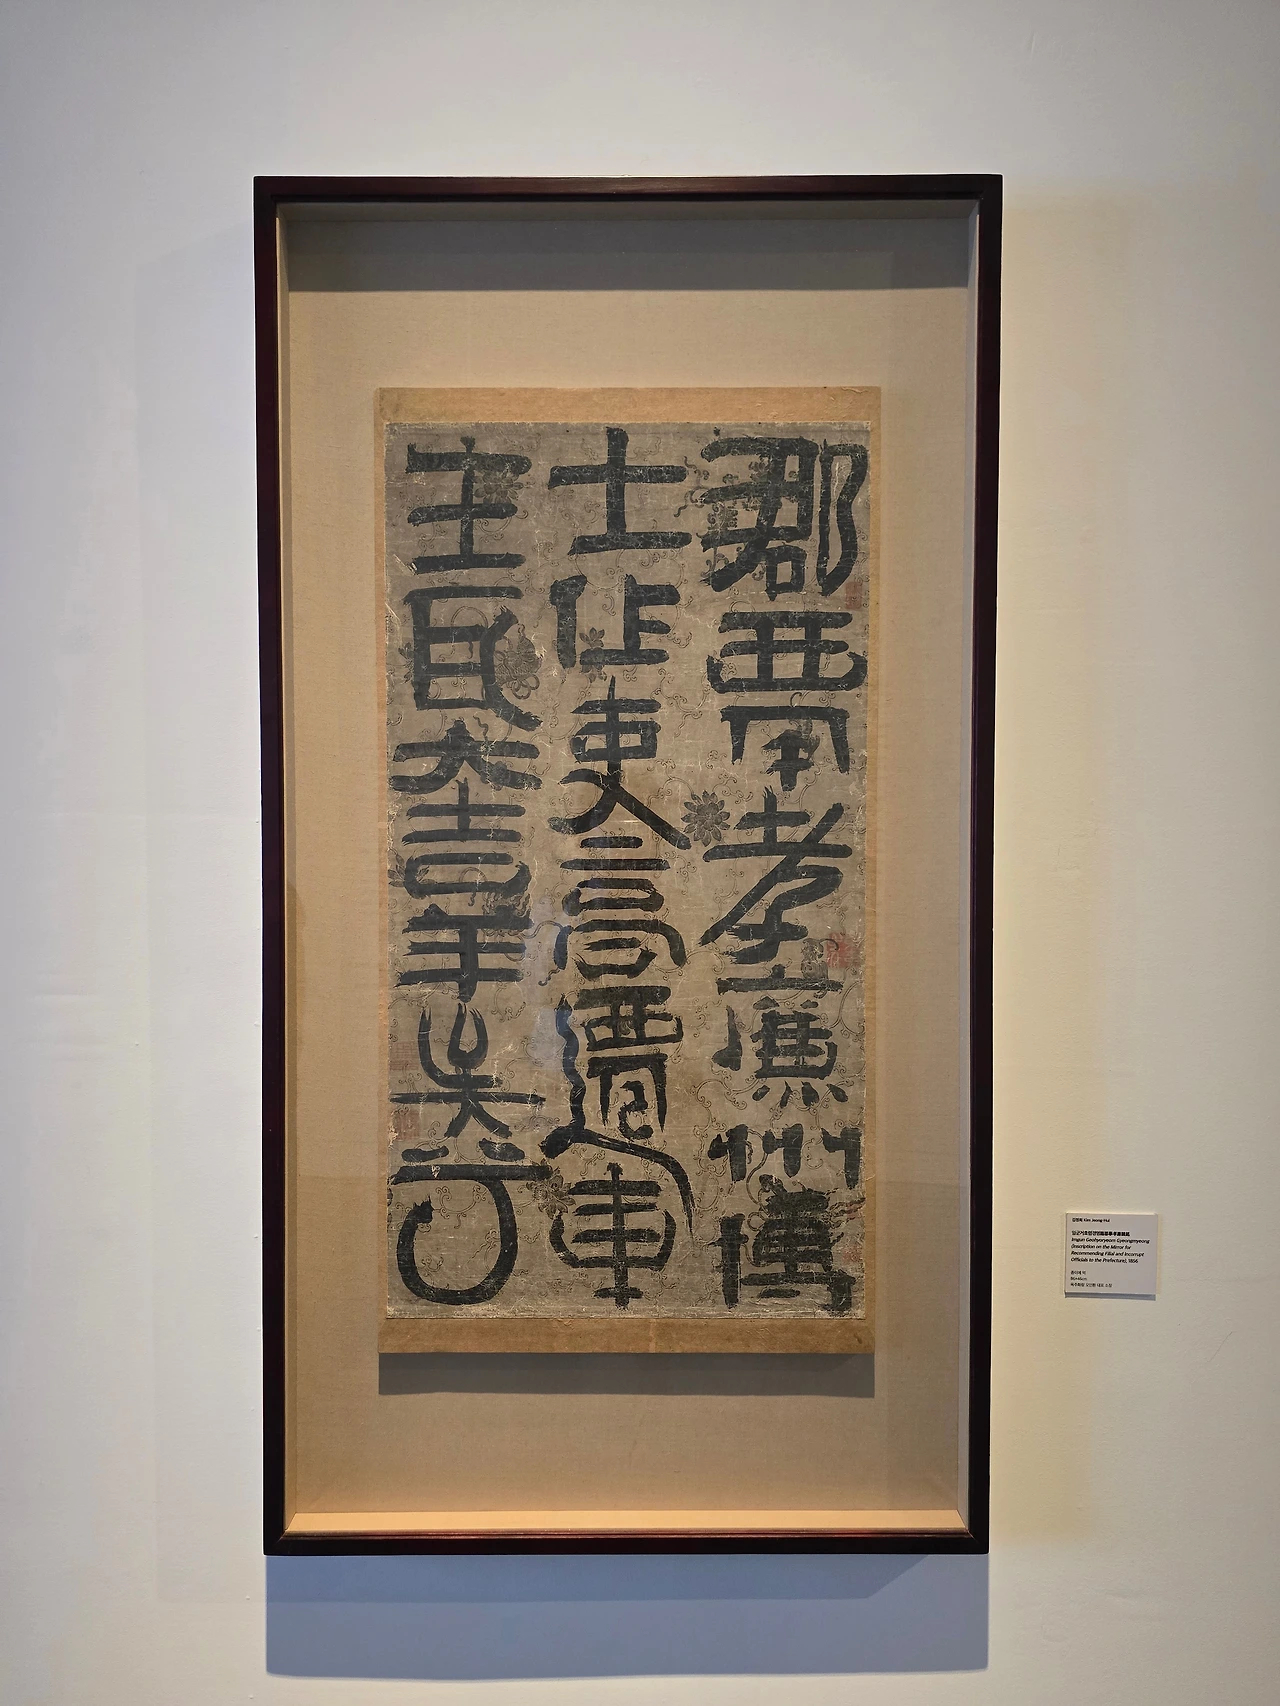 郡孝廉州博
士吏高遷車
主民大吉羊矣
김정희 Kim Jeong-Hui
Imgun Geohyoryeom Gyeongmyeong
(Inscription on the Mirror for
Recommending Filial and Incorrupt
Officials to the Prefecture), 1856
종이에 먹
대표 소장